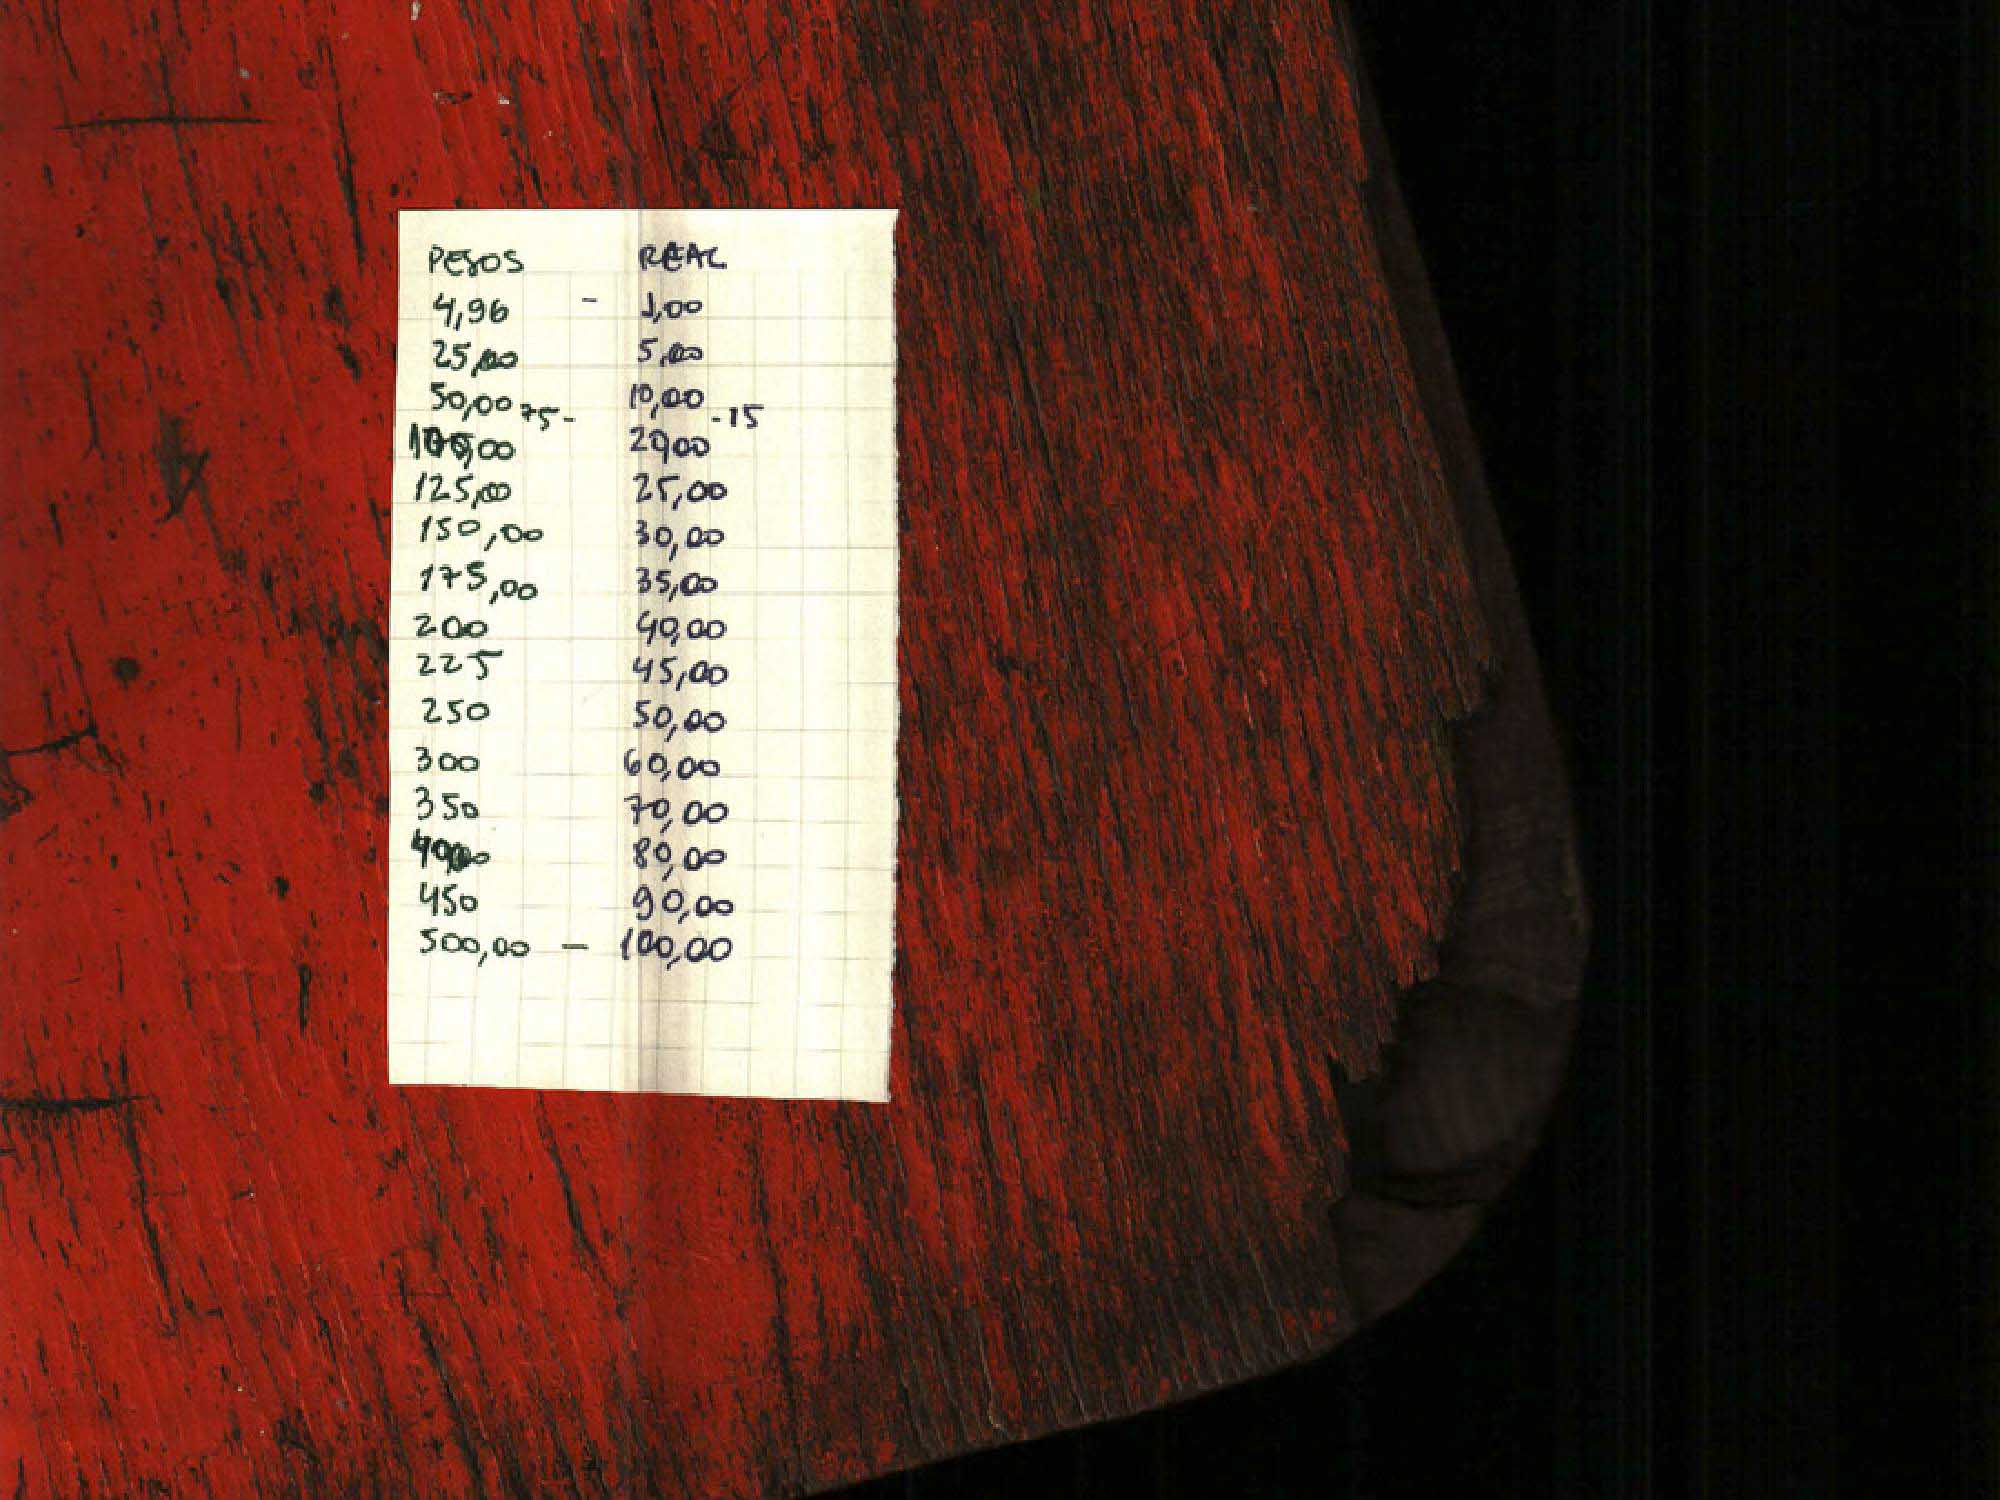 PESOS REAL
4,96 - 1,00
25,00 5,00
50,00 10,00
75 - - 15
100,00 20,00
125,00 25,00
150,00 30,00
175,00 35,00
200 40,00
225 45,00
250 50,00
300 60,00
350 70,00
400 80,00
450 90,00
500,00 - 100,00